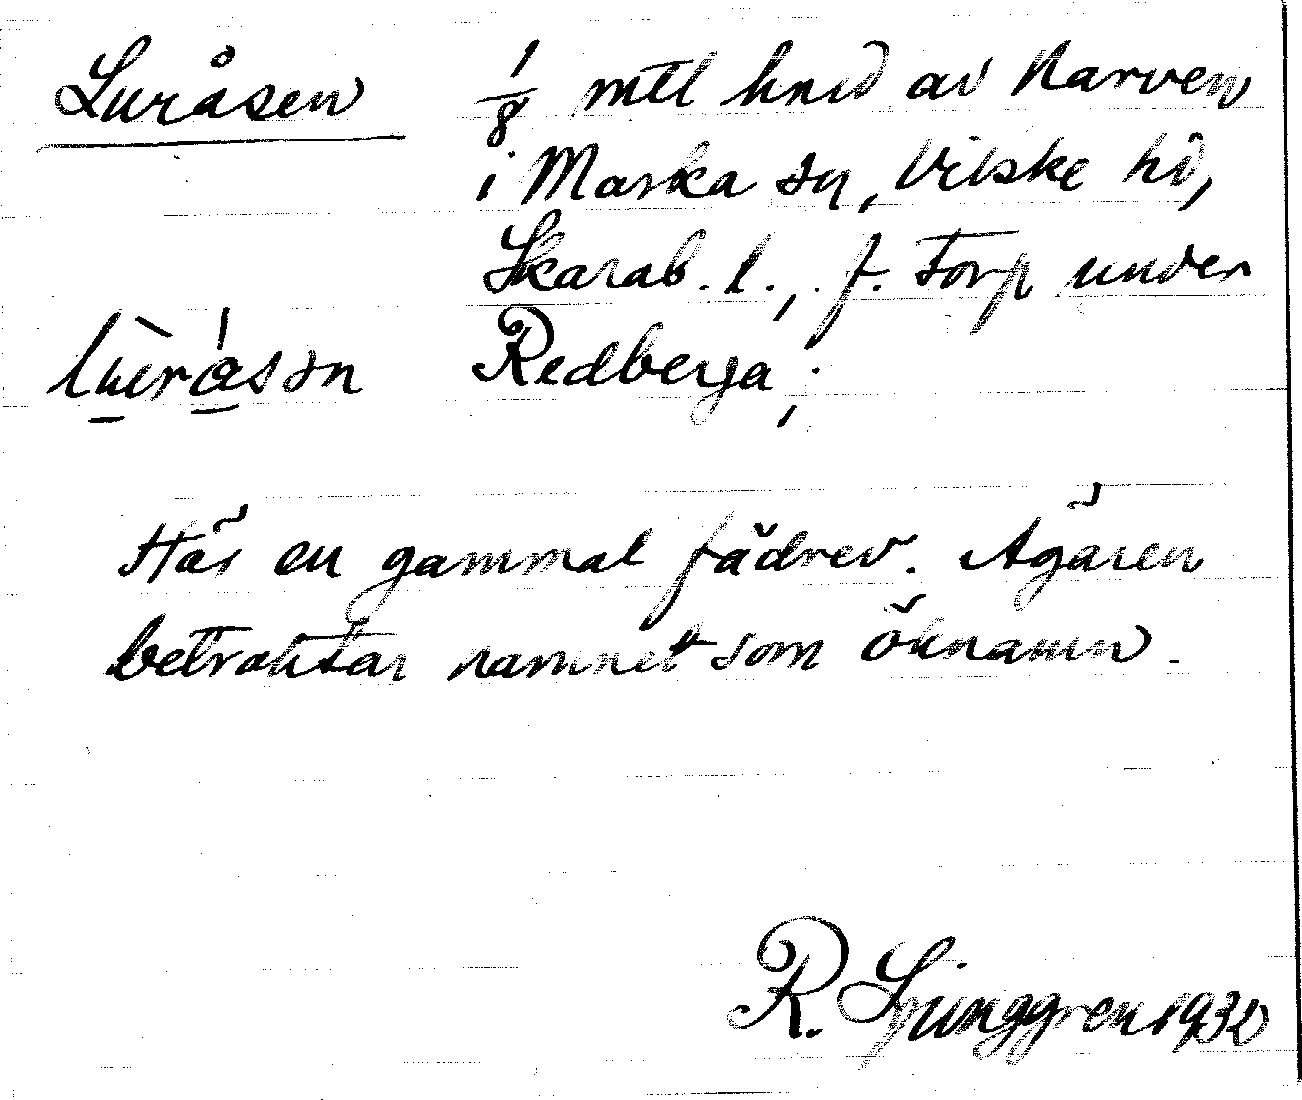 Luråsen 1/8 mtl hmd av Karven
i Marka sn, Vilske hd,
Skarab. l., f. torp under
lùrásən Redberga;
Här en gammal fädrev. Ägaren
betraktar namnet som öknamn.
R. Ljunggren 1932